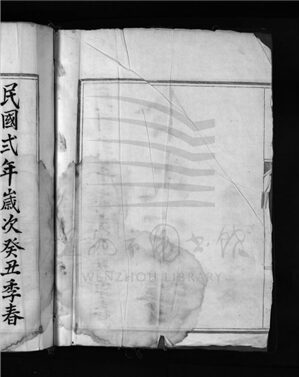 民國弍年歲次癸丑季春
溫州市圖書館
WENZHOU LIBRARY